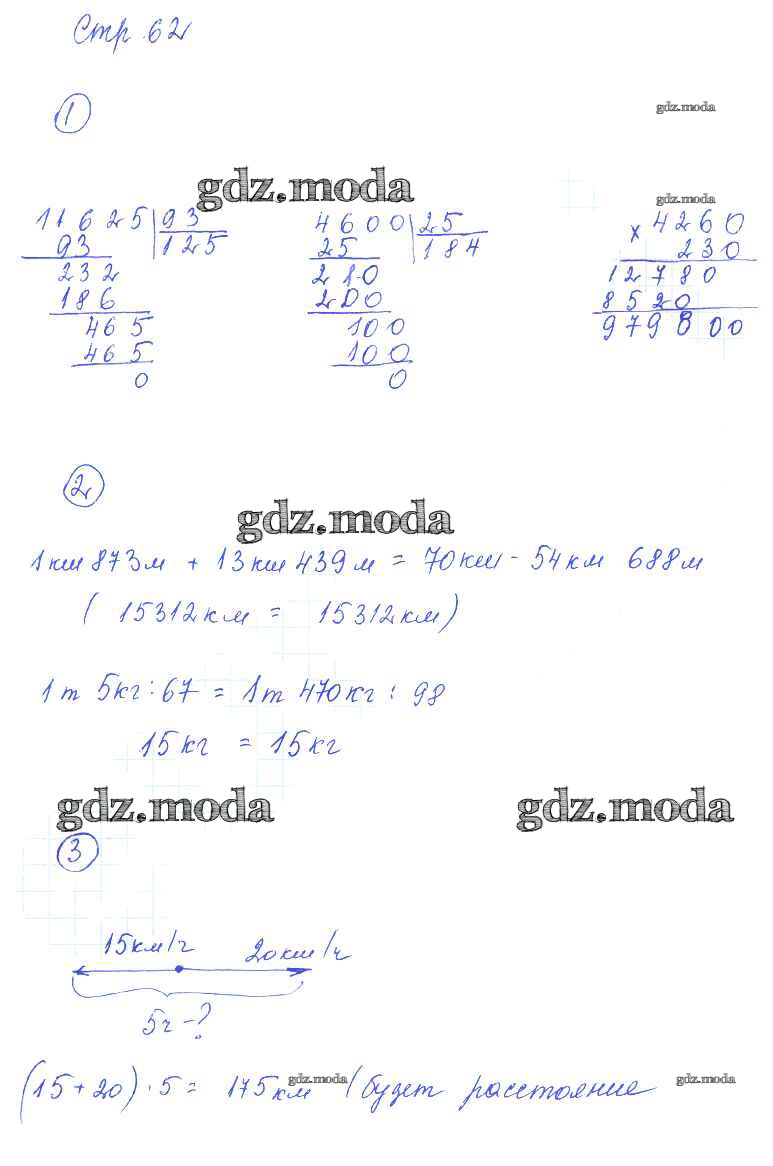 Стр 62
1
gdz.moda
gdz.moda
gdz.moda
11625 | 93
93 125
232
186
465
465
0
4600 | 25
25 184
210
200
100
100
0
× 4260
230
12780
8520
979800
2
gdz.moda
1км 873м + 13км 439м = 70км - 54км 688м
( 15312км = 15312км )
1т 5кг : 67 = 1т 470кг : 98
15кг = 15кг
gdz.moda
gdz.moda
3
15км/ч 20км/ч
5ч - ?
(15+20) · 5 = 175км (будет расстояние
gdz.moda
gdz.moda